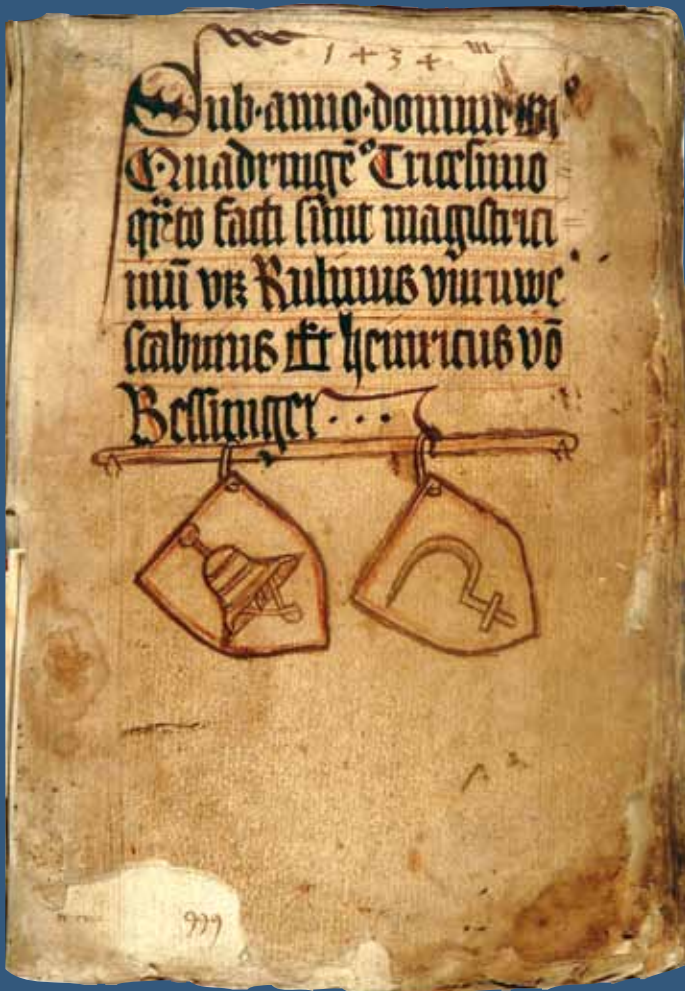 1434
Sub · anno · domini M°
Quadringē° Tricesimo
q̈rto facti sunt magistri ci
niū vtz Rulinus vinruwe
scabinus Et henricus vō
Bessinger · · ·
999